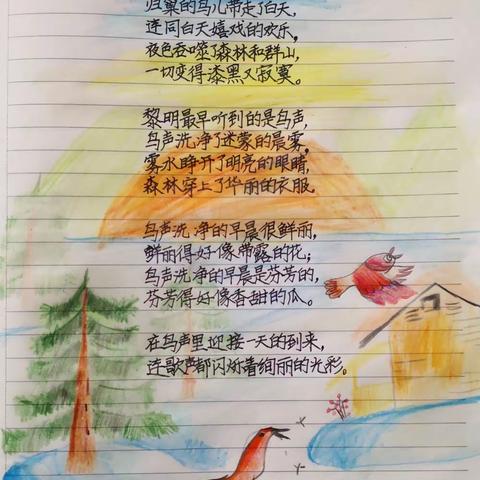 归巢的鸟儿带走了白天,
连同白天嬉戏的欢乐。
夜色吞噬了森林和群山,
一切变得漆黑又寂寞。
黎明最早听到的是鸟声,
鸟声洗净了迷蒙的晨雾。
雾水睁开了明亮的眼睛,
森林穿上了华丽的衣服。
鸟声洗净的早晨很鲜丽,
鲜丽得好像带露的花;
鸟声洗净的早晨是芬芳的,
芬芳得好像香甜的瓜。
在鸟声里迎接一天的到来,
连歌声都闪灼着绚丽的光彩。